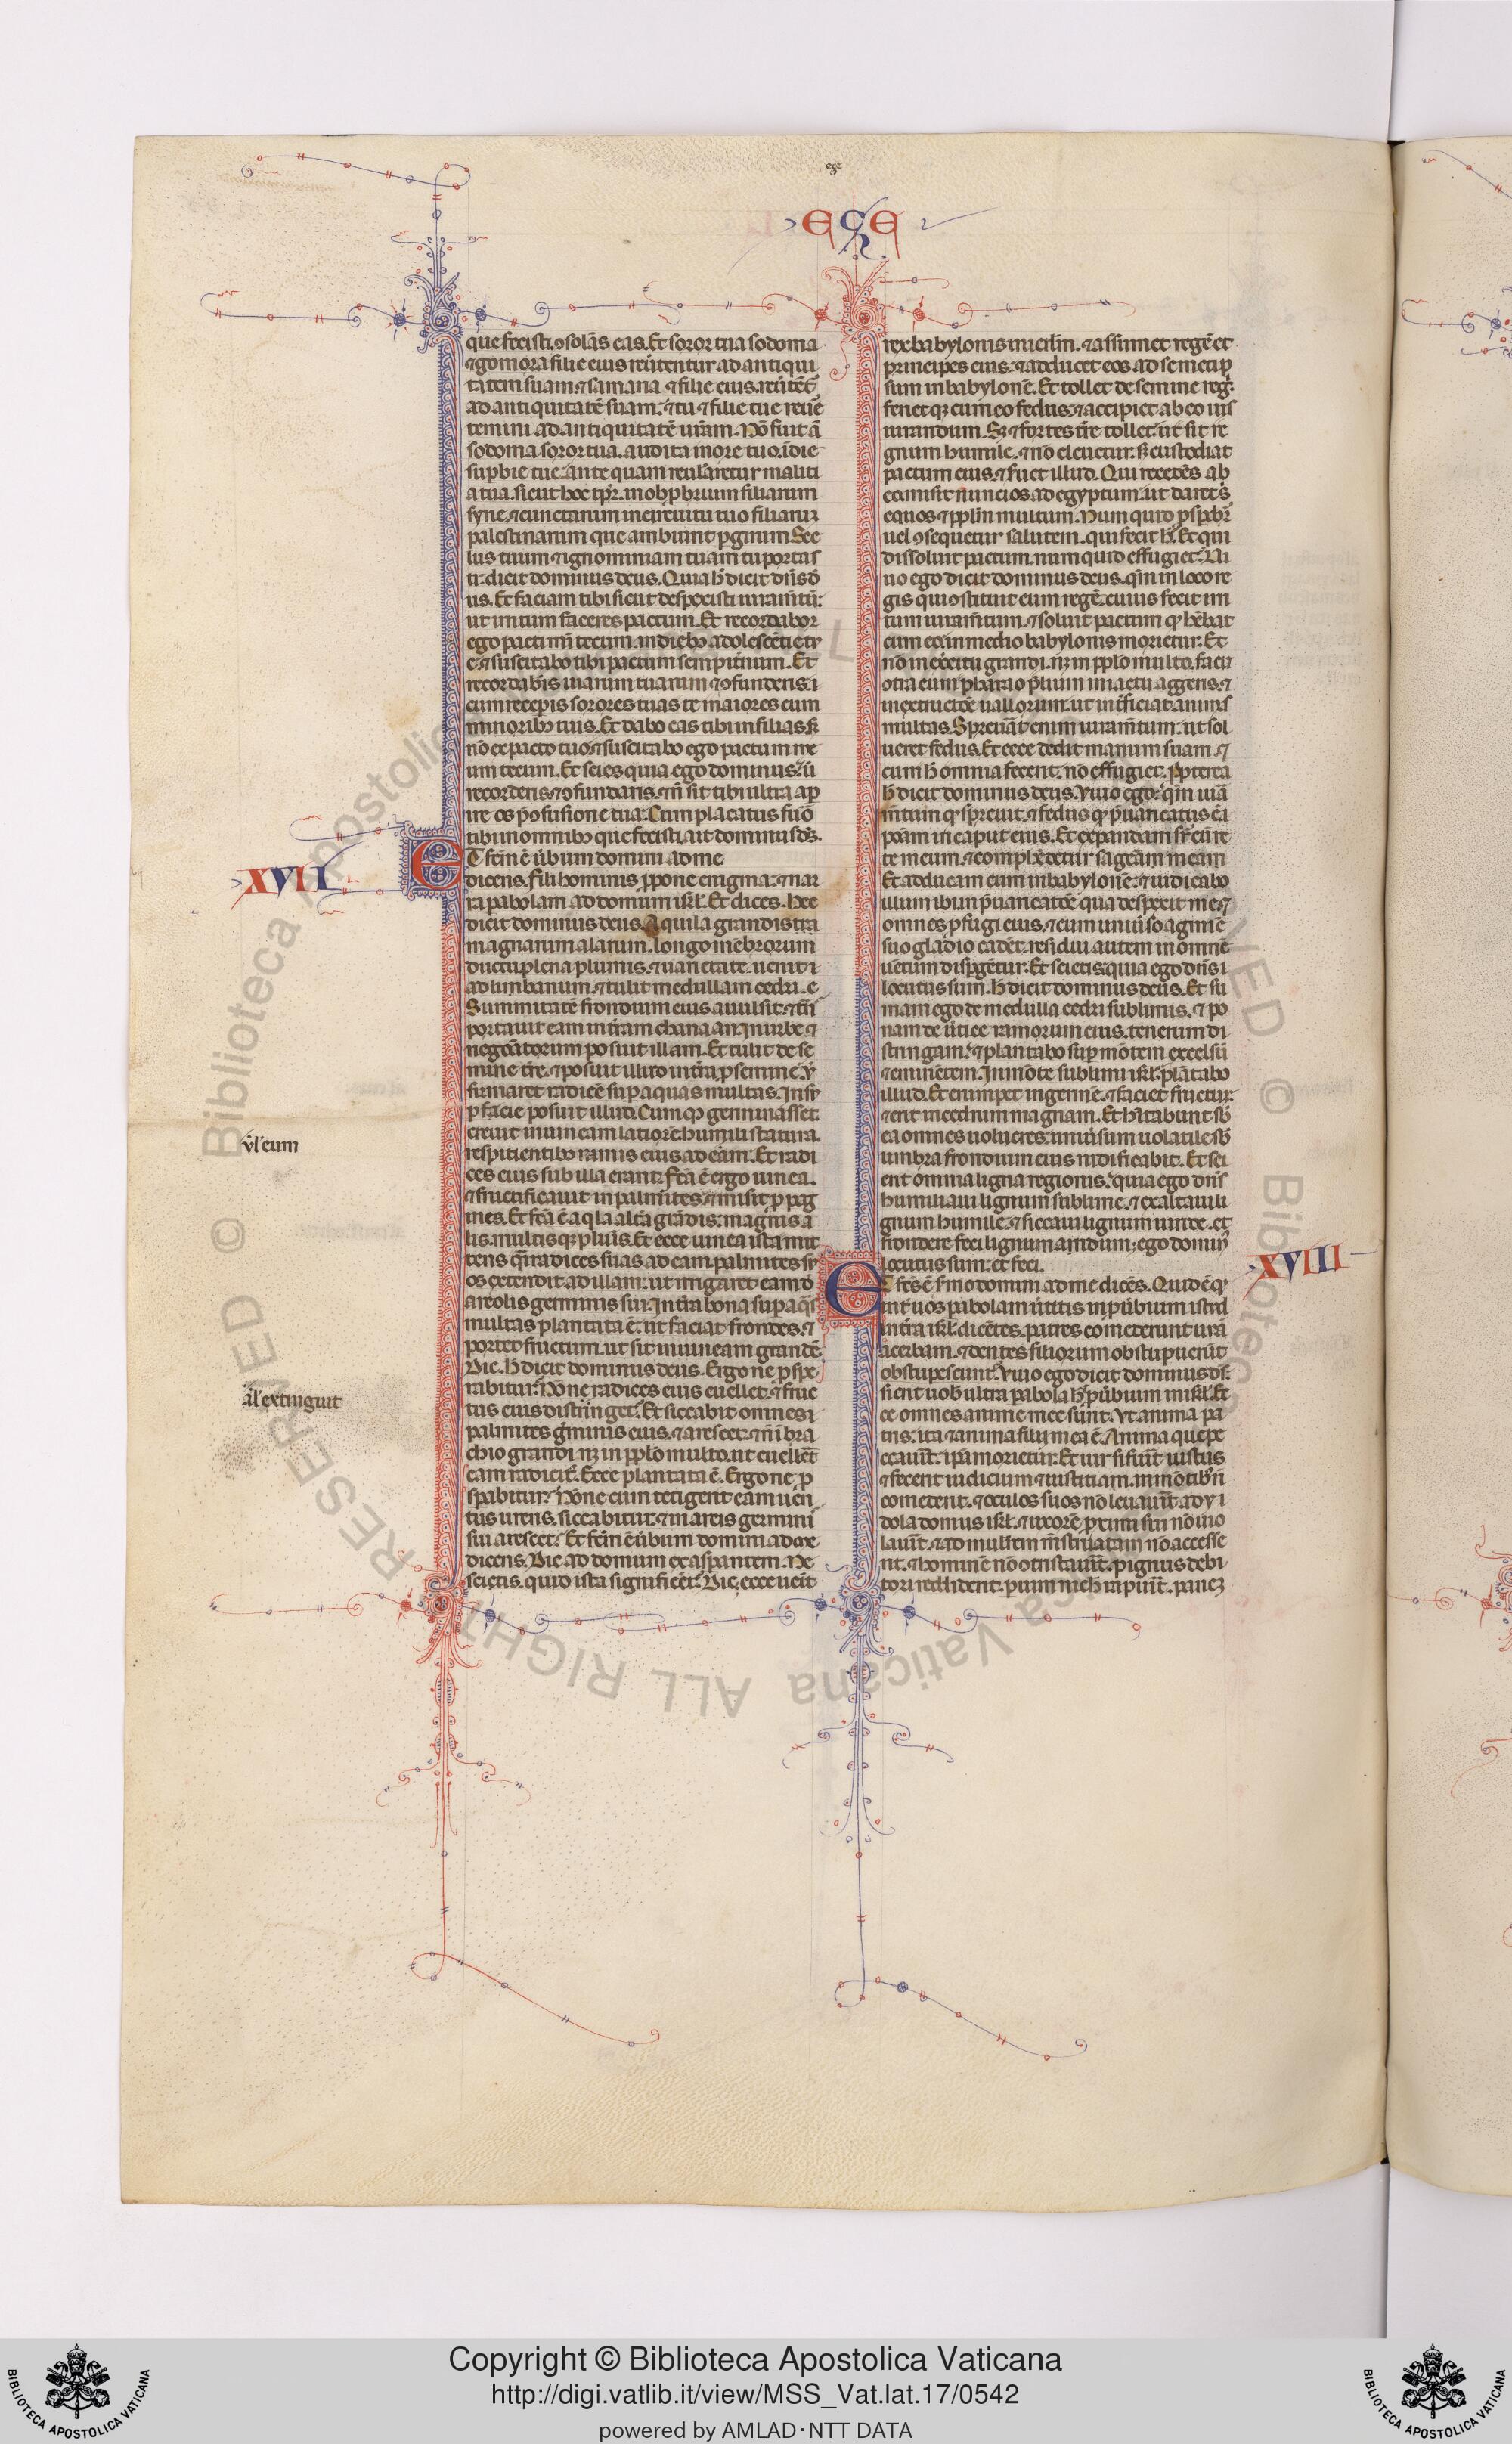 ege
EçE
que fecisti ꝯsolãs eas. Et soror tua sodoma
⁊ gomora filie eius reũtentur ad antiqui
tatem suam ⁊ samaria ⁊ filie eius reũtẽt᷑
ad antiquitatẽ suam. ⁊ tu ⁊ filie tue reũe
temini ad antiquitatẽ ur̃am. Nõ fuit ã
sodoma soror tua. audita in ore tuo. ĩ die
suꝑbie tue. ante quam reuelaretur maliti
a tua. sicut hoc tꝑr. in obꝓbrium filiarum
syrie. ⁊ cunctarum in circuitu tuo filiaruꝫ
palestinarum que ambiunt ꝑ girum. Sce
lus tuum ⁊ ignominiam tuam tu portas
ti. dicit dominus deus. Quia h̃ dicit dñs dẽ
us. Et faciam tibi sicut despexisti iuram̃tũ.
ut irritum faceres pactum. Et recordabor
ego pacti m̃i tecum. in diebꝰ adolescẽtie tr̃
e. ⁊ suscitabo tibi pactum sempit̃num. Et
recordabis uiarum tuarum ⁊ ꝯfunderis. ĩ
cum receꝑis sorores tuas te maiores cum
minoribꝰ tuis. Et dabo eas tibi in filias. sꝫ
nõ ex pacto tuo. ⁊ suscitabo ego pactum me
um tecum. Et scies quia ego dominus. ũ
recorderis. ⁊ ꝯfundaris. ⁊ ñ sit tibi ultra aꝑ
ire os p̃ ꝯfusione tua. Cum placatus fuo
tibi in omnibꝰ que fecisti. ait dominus ds̃.
XVII
ET fcm̃ ẽ ũbum domini ad me
dicens. Fili hominis ꝓpone enigma. ⁊ nar
ra ꝑabolam ad domum isrl̃. Et dices. Hec
dicit dominus deus. Aquila grandis tra
magnarum alarum. longo mẽbrorum
ductu. plena plumis. ⁊ uarietate. uenit ĩ
ad lymbanum. ⁊ tulit medullam cedri. ⁊
Summitatẽ frondium eius auulsit. ⁊ tñs
portauit eam in tr̃am chanaan. In urbe ⁊
negoc̃atorum posuit illam. Et tulit de se
mine tr̃e. ⁊ posuit illud in tr̃a ꝓ semine. ⁊
firmaret radicẽ suꝑ aquas multas. In sũ
ꝑ facie posuit illud. Cum qꝫ germinasset.
creuit in uineam latiorẽ humili statura.
respitientibꝰ ramis eius ad eam. Et radi
v̉l eum
ces eius sub illa erant. Fcã ẽ ergo uinea.
⁊ fructificauit in palmites. ⁊ misit ꝓ pag
ines. Et fcã ẽ aq̃la alt̃a grãdis. magnis a
lis. multisqꝫ plum̃is. Et ecce uinea ista mit
tens q̃si radices suas ad eam. palmites su
os extendit ad illam. ut irrigaret eam đ
areolis germinis sui. In tr̃a bona suꝑ aq̃s
multas plantata ẽ. ut faciat frondes. ⁊
portet fructum. ut sit in uineam grandẽ.
Dic. h̃ dicit dominus deus. Ergo ne ꝓspe
rabitur. Nõne radices eius euellet. ⁊ fruc
ãl extinguit
tus eius distringet. Et siccabit omnes ĩ
palmites ger̃minis eius. ⁊ arescet. ⁊ ñ ĩ bra
chio grandi nꝫ in pplo multo. ut euelleret
eam radicit᷑. Ecce plantata ẽ. Ergo ne ꝓ
sꝑabitur. Nõne cum tetigerit eam uen
tus urens. siccabitur. ⁊ in areis germini
sui arescet. Et fcm̃ ẽ ũbum domini ad me
dicens. Dic ad domum exasꝑantem. Ne
scietis quid ista significẽt. Dic. ecce ueĩt
rex babylonis in ierlm̃. ⁊ assumet regẽ et
principes eius. ⁊ adducet eos ad semetip̃
sum in babylonẽ. Et tollet de semine reg̃.
ferietqꝫ cum eo fedus. ⁊ accipiet ab eo ius
iurandum. Sꝫ ⁊ fortes tr̃e tollet. ut sit re
gnum humile. ⁊ nõ eleuetur. sꝫ custodiat
pactum eius. ⁊ s̃uet illud. Qui recedẽs ab
eo misit nuncios ad egyptum. ut daret s̃
equos ⁊ pplm̃ multum. Num quid ꝓsꝑabit᷑
uel ꝯsequetur salutem. qui fecit h̃. Et qui
dissoluit pactum. num quid effugiet. Vi
uo ego dicit dominus deus. qm̃ in loco re
gis qui ꝯstituit eum regẽ. cuius fecit irri
tum iuram̃tum. ⁊ soluit pactum qđ hẽbat
cum eo. in medio babylonis morietur. Et
nõ in exercitu grandi. nꝫ in pplo multo. faciet
ꝯtra eum pharao p̃lium. in iactu aggeris. ⁊
in extructõe uallorum. ut int̃ficiat animas
multas. Spreuãt enim iuram̃tum. ut sol
ueret fedus. Et ecce dedit manum suam. ⁊
cum h̃ omnia fecerit. nõ effugiet. Ꝓpterea
h̃ dicit dominus deus. Viuo ego. qm̃ iurã
m̃tum qđ spreuit. ⁊ fedus qđ p̃uaricatus ẽ. ĩ
ponam in caput eius. Et expandam sr̃ eũ re
te meum. ⁊ comp̃hẽdetur sagẽa mea.
Et adducam eum in babylonẽ. ⁊ iudicabo
illum ibi in p̃uaricatõe qua despexit me. ⁊
omnes ꝓfugi eius. ⁊ cum uniũso agmiẽ
suo gladio cadẽt. residui autem in omnẽ
uẽtum disꝑgẽtur. Et scietis quia ego dñs ĩ
locutus sum. h̃ dicit dominus deus. Et su
mam ego de medulla cedri sublimis. ⁊ po
nam de ũtice ramorum eius. tenerum di
stringam. ⁊ plantabo suꝑ mõtem excelsũ
⁊ eminẽtem. In mõte sublimi isrl̃ plãtabo
illud. Et erumpet in germẽ. ⁊ faciet fructum.
⁊ erit in cedrum magnam. Et hitabunt sb̃
ea omnes uolucres. uniũsum uolatile sb̃
umbra frondium eius nidificabit. Et sci
ent omnia ligna regionis. quia ego dñs
humiliaui lignum sublime. ⁊ exaltaui li
gnum humile. ⁊ siccaui lignum uiride. et
frondere feci lignum aridum. ego domin̉
locutus sum. et feci.
XVIII
ET fc̃s ẽ s̃mo domini ad me dicẽs. Quid ẽ qđ
int̃ uos ꝑabolam ũtitis in ꝓũbium istud
in tr̃a isrl̃ dicẽtes. patres comederunt uuã
acerbam. ⁊ dentes filiorum obstupuerũt
obstupescunt. Viuo ego dicit dominus ds̃.
si erit uob̃ ultra ꝑabola h̃ ꝓũbium in isrl̃. Ec
ce omnes anime mee sunt. Vt anima pa
tris. ita ⁊ anima filij mea ẽ. Anima que pec
cauit. ip̃a morietur. Et uir si fuĩt iustus
⁊ fecerit iudicium ⁊ iustitiam. in mõtibꝰ ñ
comederit. ⁊ oculos suos nõ leuauĩt ad y ĩ
dola domus isrl̃. ⁊ uxorẽ ꝓximi sui nõ uio
lauĩt. ⁊ ad mulĩem mẽstruatam nõ accesse
rit. ⁊ hominẽ nõ ꝯtristauĩt. pignus debi
tori reddiderit. ꝑ uim nich̃ rapuĩt. paneꝫ
Copyright © Biblioteca Apostolica Vaticana
http://digi.vatlib.it/view/MSS_Vat.lat.17/0542
powered by AMLAD·NTT DATA
BIBLIOTECA APOSTOLICA VATICANA
BIBLIOTECA APOSTOLICA VATICANA